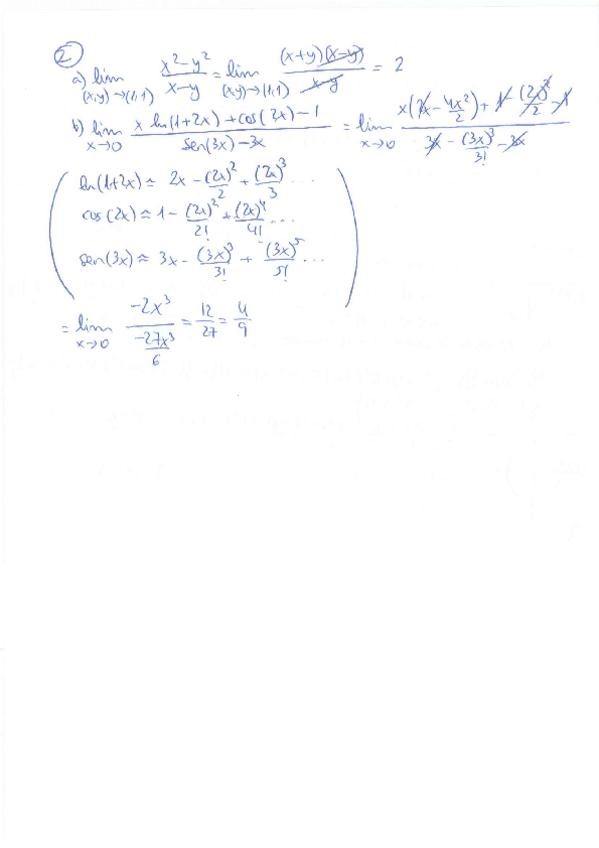 2
a) lim (x,y)→(1,1) (x²-y²)/(x-y) = lim (x,y)→(1,1) ((x+y)(x-y))/(x-y) = 2
b) lim x→0 (x ln(1+2x) + cos(2x) - 1)/(sen(3x) - 3x) = lim x→0 (x(2x - 4x²/2) + 1 - (2x)²/2 - 1)/(3x - (3x)³/3! - 3x)
ln(1+2x) ≈ 2x - (2x)²/2 + (2x)³/3 ...
cos(2x) ≈ 1 - (2x)²/2! + (2x)⁴/4! ...
sen(3x) ≈ 3x - (3x)³/3! + (3x)⁵/5! ...
= lim x→0 (-2x³)/(-27x³/6) = 12/27 = 4/9